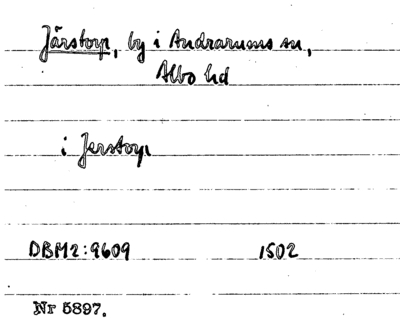 Järstorp, by i Andrarums sn,
Albo hd
i Jerstorp
DBM2:9609 1502
Nr 5897.